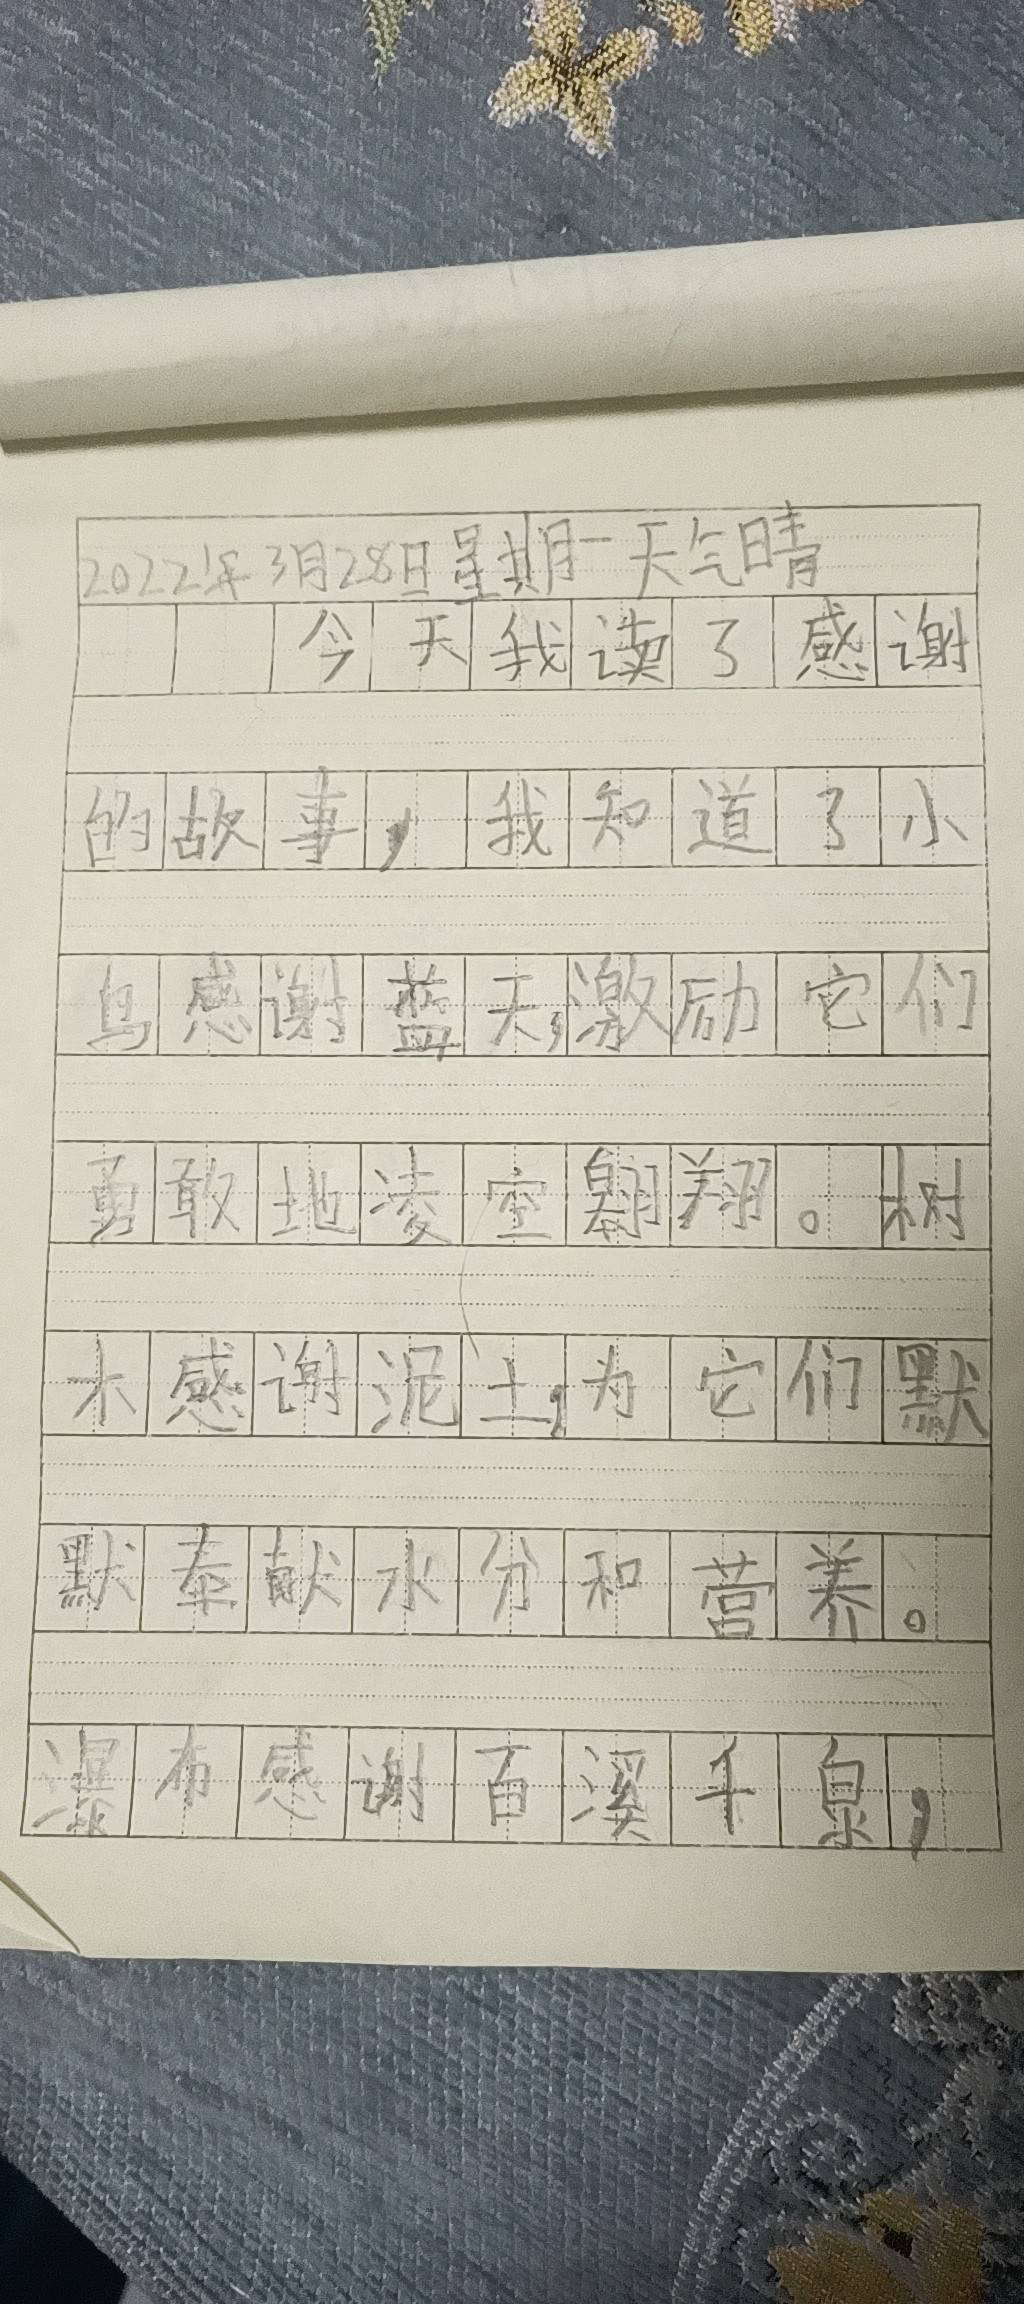 2022年3月28日星期一天气晴
今天我读了感谢
的故事,我知道了小
鸟感谢蓝天,激励它们
勇敢地凌空翱翔。树
木感谢泥土,为它们默
默奉献水分和营养。
瀑布感谢百溪千泉,